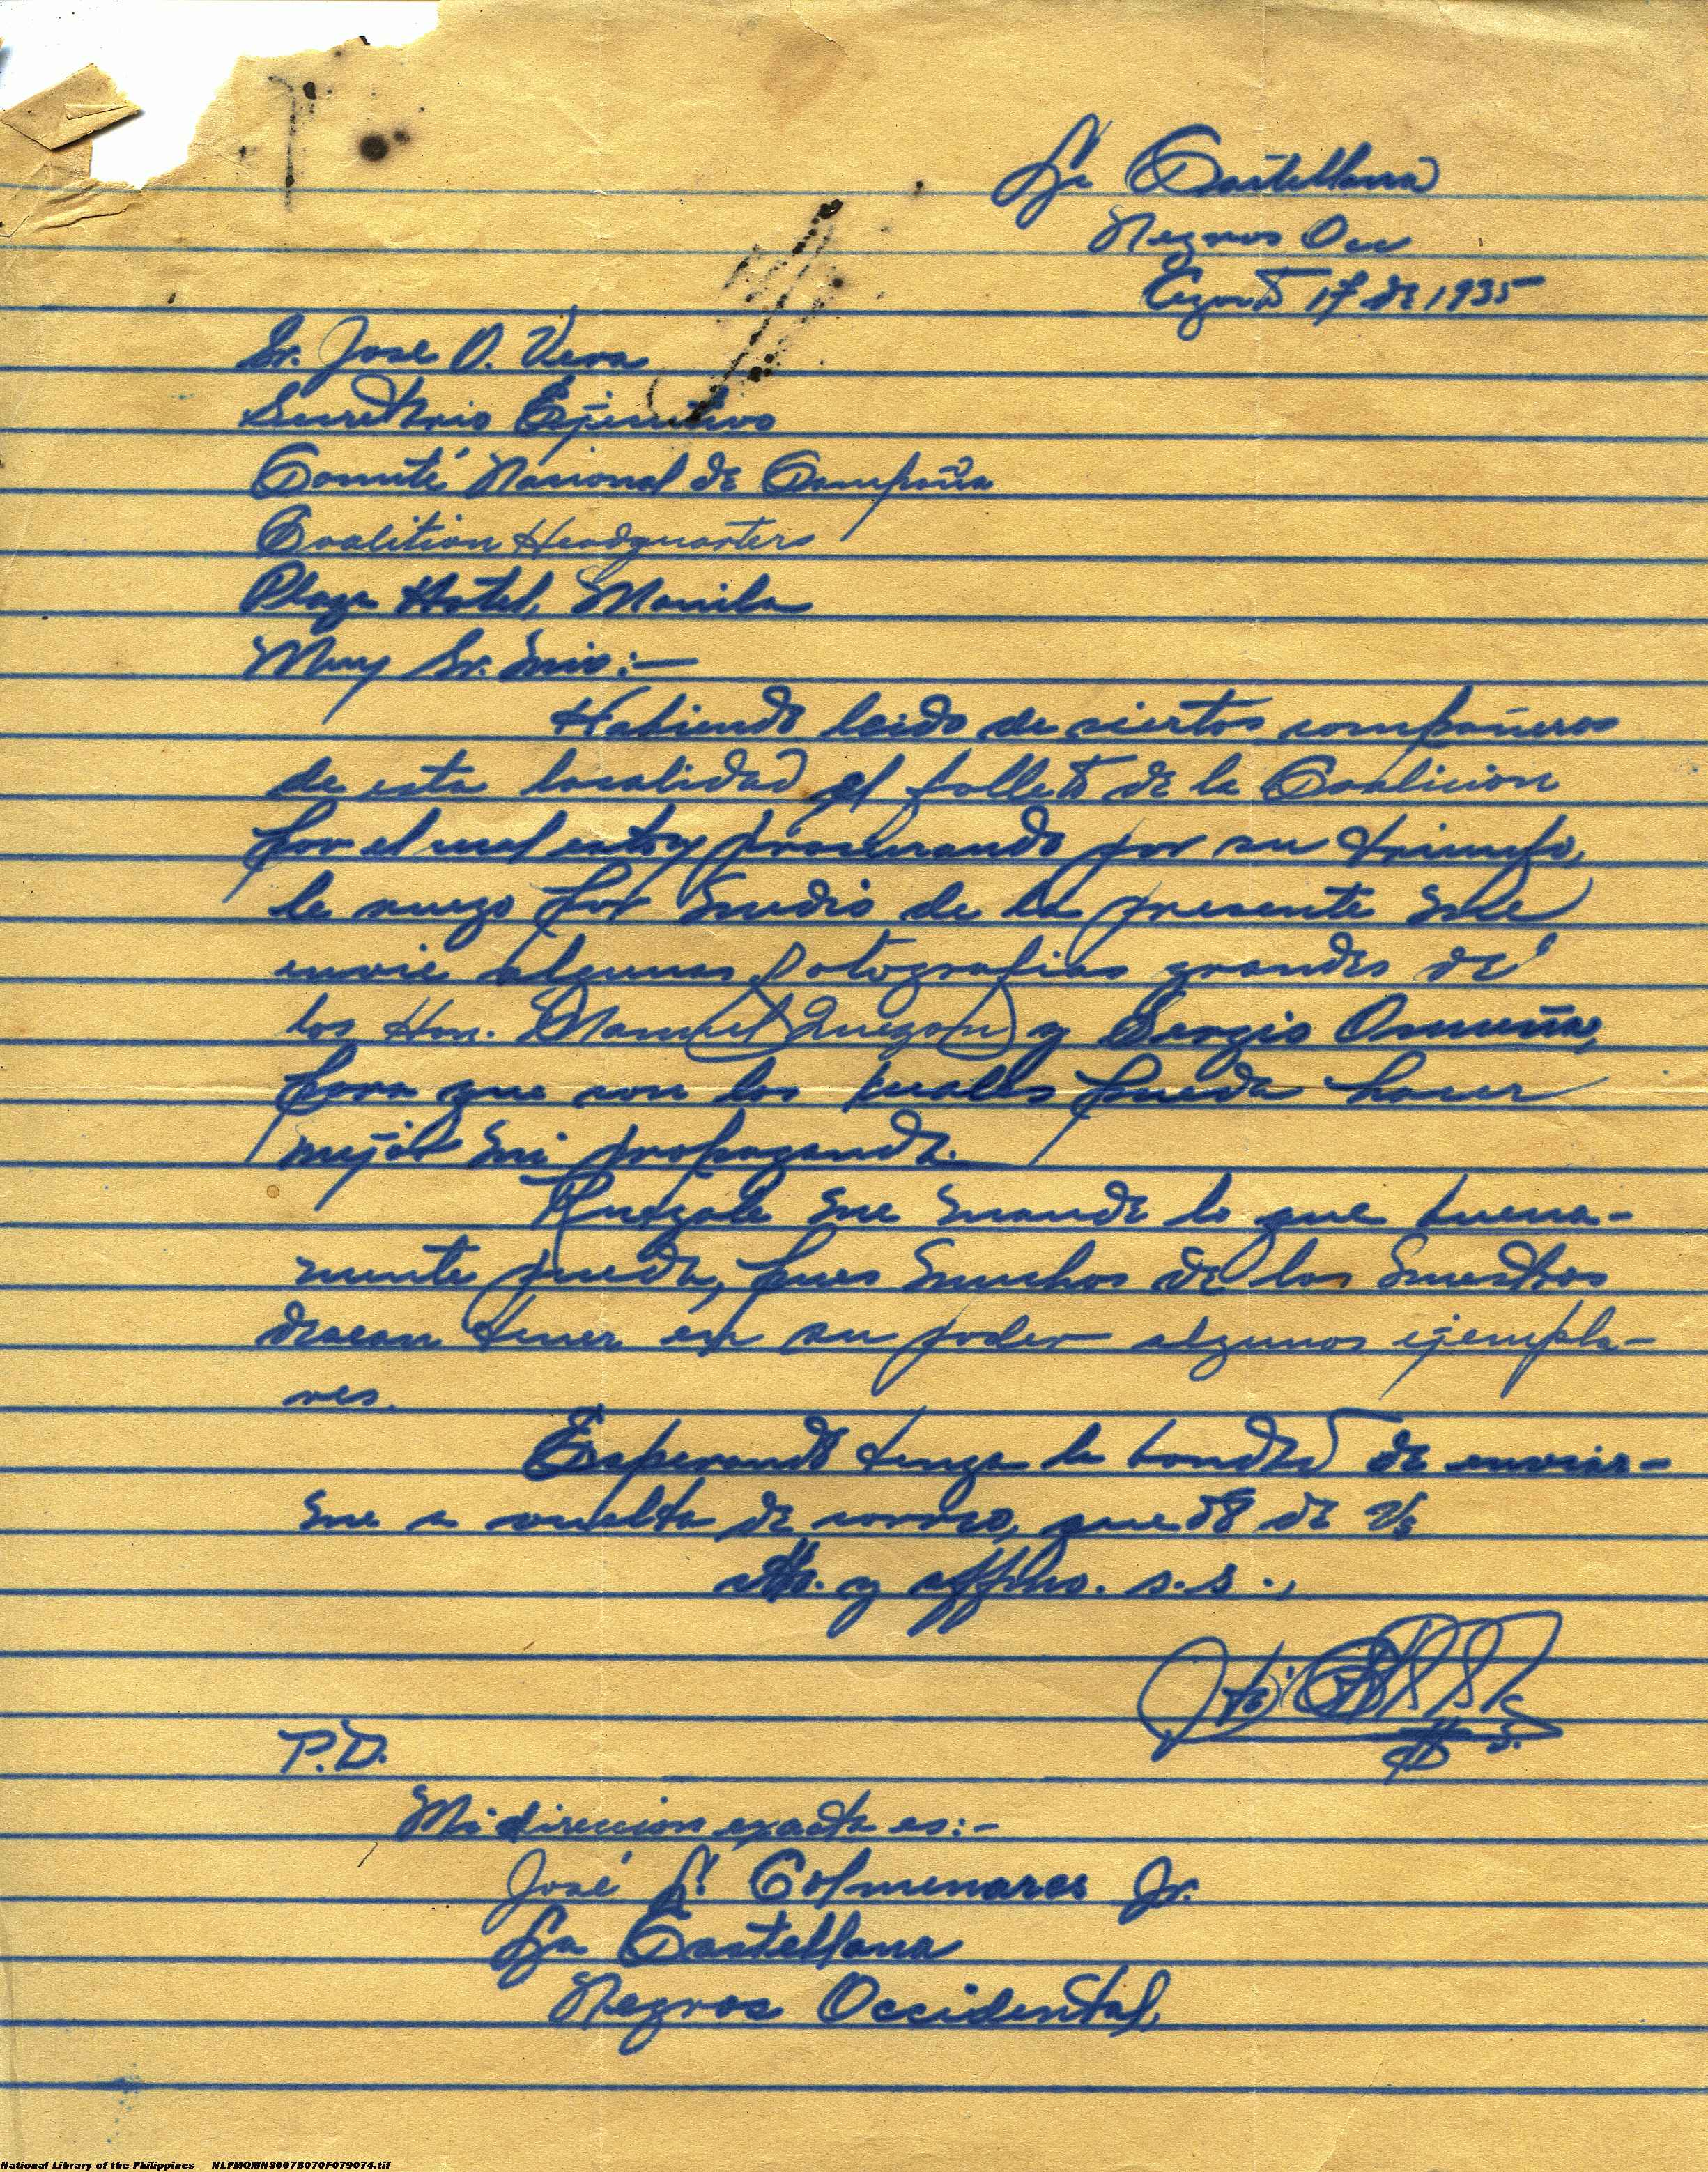 La Castellana
Negros Occ
Agosto 17 de 1935
Sr. Jose O. Vera
Secretario Ejecutivo
Comité Nacional de Campaña
Coalition Headquarters
Plaza Hotel, Manila
Muy Sr. mio:—
Habiendo leido de ciertos compañeros
de esta localidad el folleto de la Coalicion
por el cual estoy procurando por su triunfo,
le ruego por medio de la presente me
envie algunas fotografias grandes de
los Hon. Manuel Quezon y Sergio Osmeña,
para que con los kuales pueda hacer
mejor mi propaganda.
Ruegole me mande lo que buena-
mente pueda, pues muchos de los nuestros
desean tener en su poder algunos ejempla-
res.
Esperando tenga la bondad de enviar-
me a vuelta de correo, quedo de Vs
atto. y affmo. s.s.,
P.D.
Mi direccion exacta es:-
José L. Colmenares Jr.
La Castellana
Negros Occidental.
National Library of the Philippines NLPMQMNS007B070F079074.tif